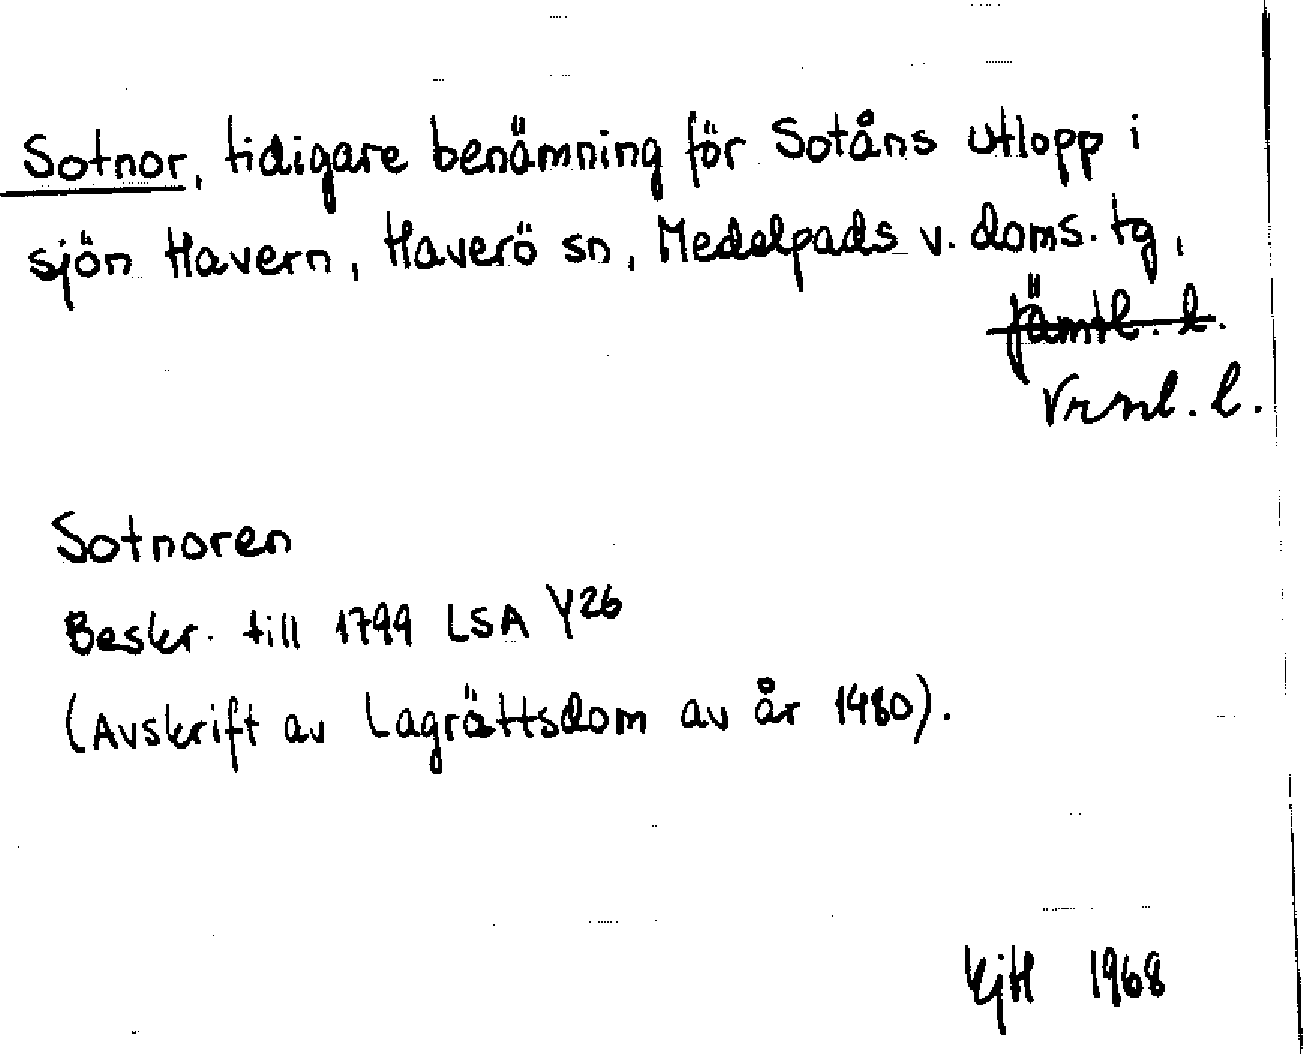 Sotnor, tidigare benämning för Sotåns utlopp i
sjön Havern, Haverö sn, Medelpads v. doms. tg,
Jämtl. l.
Vrnl. l.
Sotnoren
Beskr. till 1799 LSA Y26
(Avskrift av Lagrättsdom av år 1480).
KjH 1968